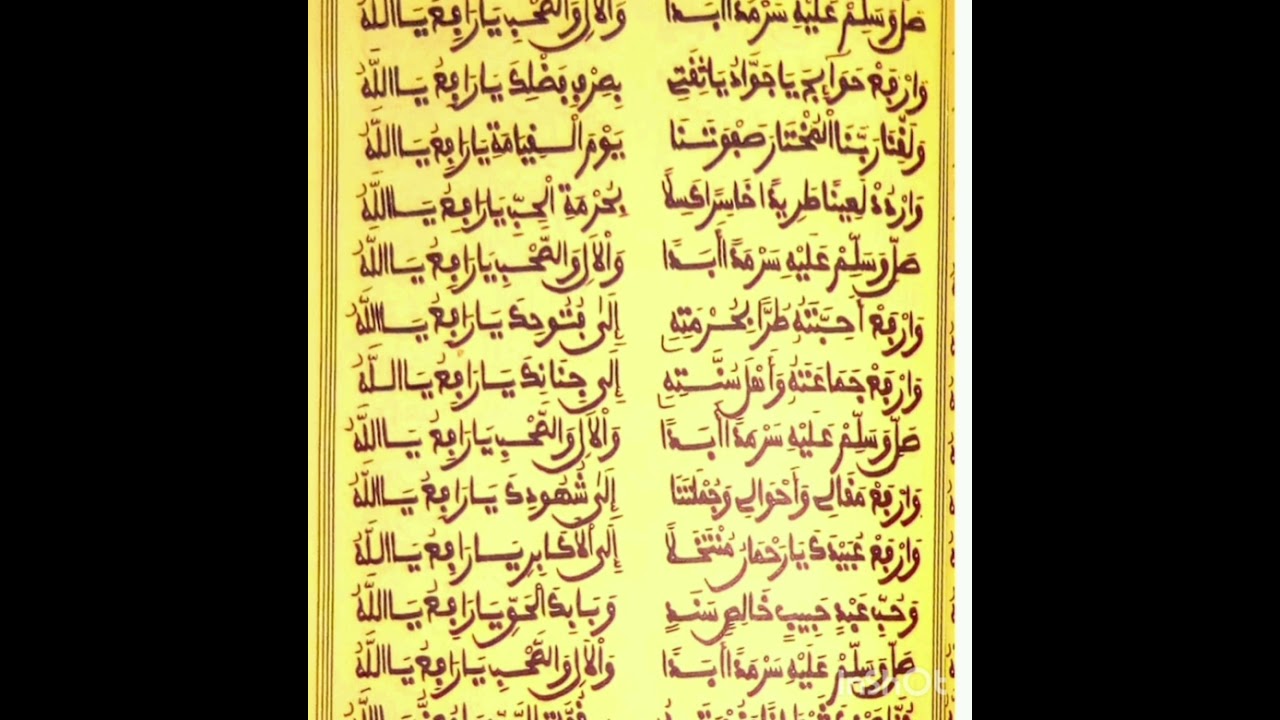 صَلِّ وَسَلِّمْ عَلَيْهِ سَرْمَدًا أَبَدًا وَالْآلِ وَالصَّحْبِ يَا رَافِعُ يَا اللَّهُ
وَارْفَعْ حَوَائِجِ يَا جَوَّادُ يَا ثِقَتِي بِصِرْفِ فَضْلِكَ يَا رَافِعُ يَا اللَّهُ
وَلَقِّنَا رَبَّنَا الْمُخْتَارَ صَفْوَتَنَا يَوْمَ الْقِيَامَةِ يَا رَافِعُ يَا اللَّهُ
وَارْدُدْ لَعِينًا طَرِيدًا خَاسِرًا كَسِلًا بِحُرْمَةِ الْحِبِّ يَا رَافِعُ يَا اللَّهُ
صَلِّ وَسَلِّمْ عَلَيْهِ سَرْمَدًا أَبَدًا وَالْآلِ وَالصَّحْبِ يَا رَافِعُ يَا اللَّهُ
وَارْفَعْ أَحِبَّتَهُ طُرًّا بِحُرْمَتِهِ إِلَى فُتُوحِكَ يَا رَافِعُ يَا اللَّهُ
وَارْفَعْ جَمَاعَتَهُ وَأَهْلَ سُنَّتِهِ إِلَى جِنَانِكَ يَا رَافِعُ يَا اللَّهُ
صَلِّ وَسَلِّمْ عَلَيْهِ سَرْمَدًا أَبَدًا وَالْآلِ وَالصَّحْبِ يَا رَافِعُ يَا اللَّهُ
وَارْفَعْ مَقَالِي وَأَحْوَالِي وَجُمْلَتَنَا إِلَى شُهُودِكَ يَا رَافِعُ يَا اللَّهُ
وَارْفَعْ عُبَيْدَكَ يَا رَحْمَانُ مُنْتَخَلًا إِلَى الْأَكَابِرِ يَا رَافِعُ يَا اللَّهُ
وَحُبِّ عَبْدٍ حَبِيبٍ خَالِصٍ سَنَدٍ وَبَابِكَ الْحَقِّ يَا رَافِعُ يَا اللَّهُ
صَلِّ وَسَلِّمْ عَلَيْهِ سَرْمَدًا أَبَدًا وَالْآلِ وَالصَّحْبِ يَا رَافِعُ يَا اللَّهُ
InShOt